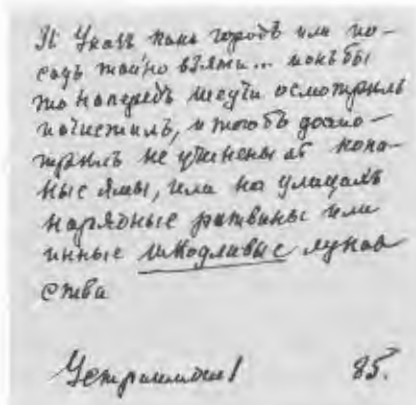 Указъ какъ городъ или по-
садъ тайно взяти... какъ бы
то напередъ людей осмотрилъ
почистилъ, и чтобъ досмо-
трилъ не учинены ль копа-
ные ямы, или на улицахъ
нарядные рытвины или
инные шкодливые лукав
ства
85.